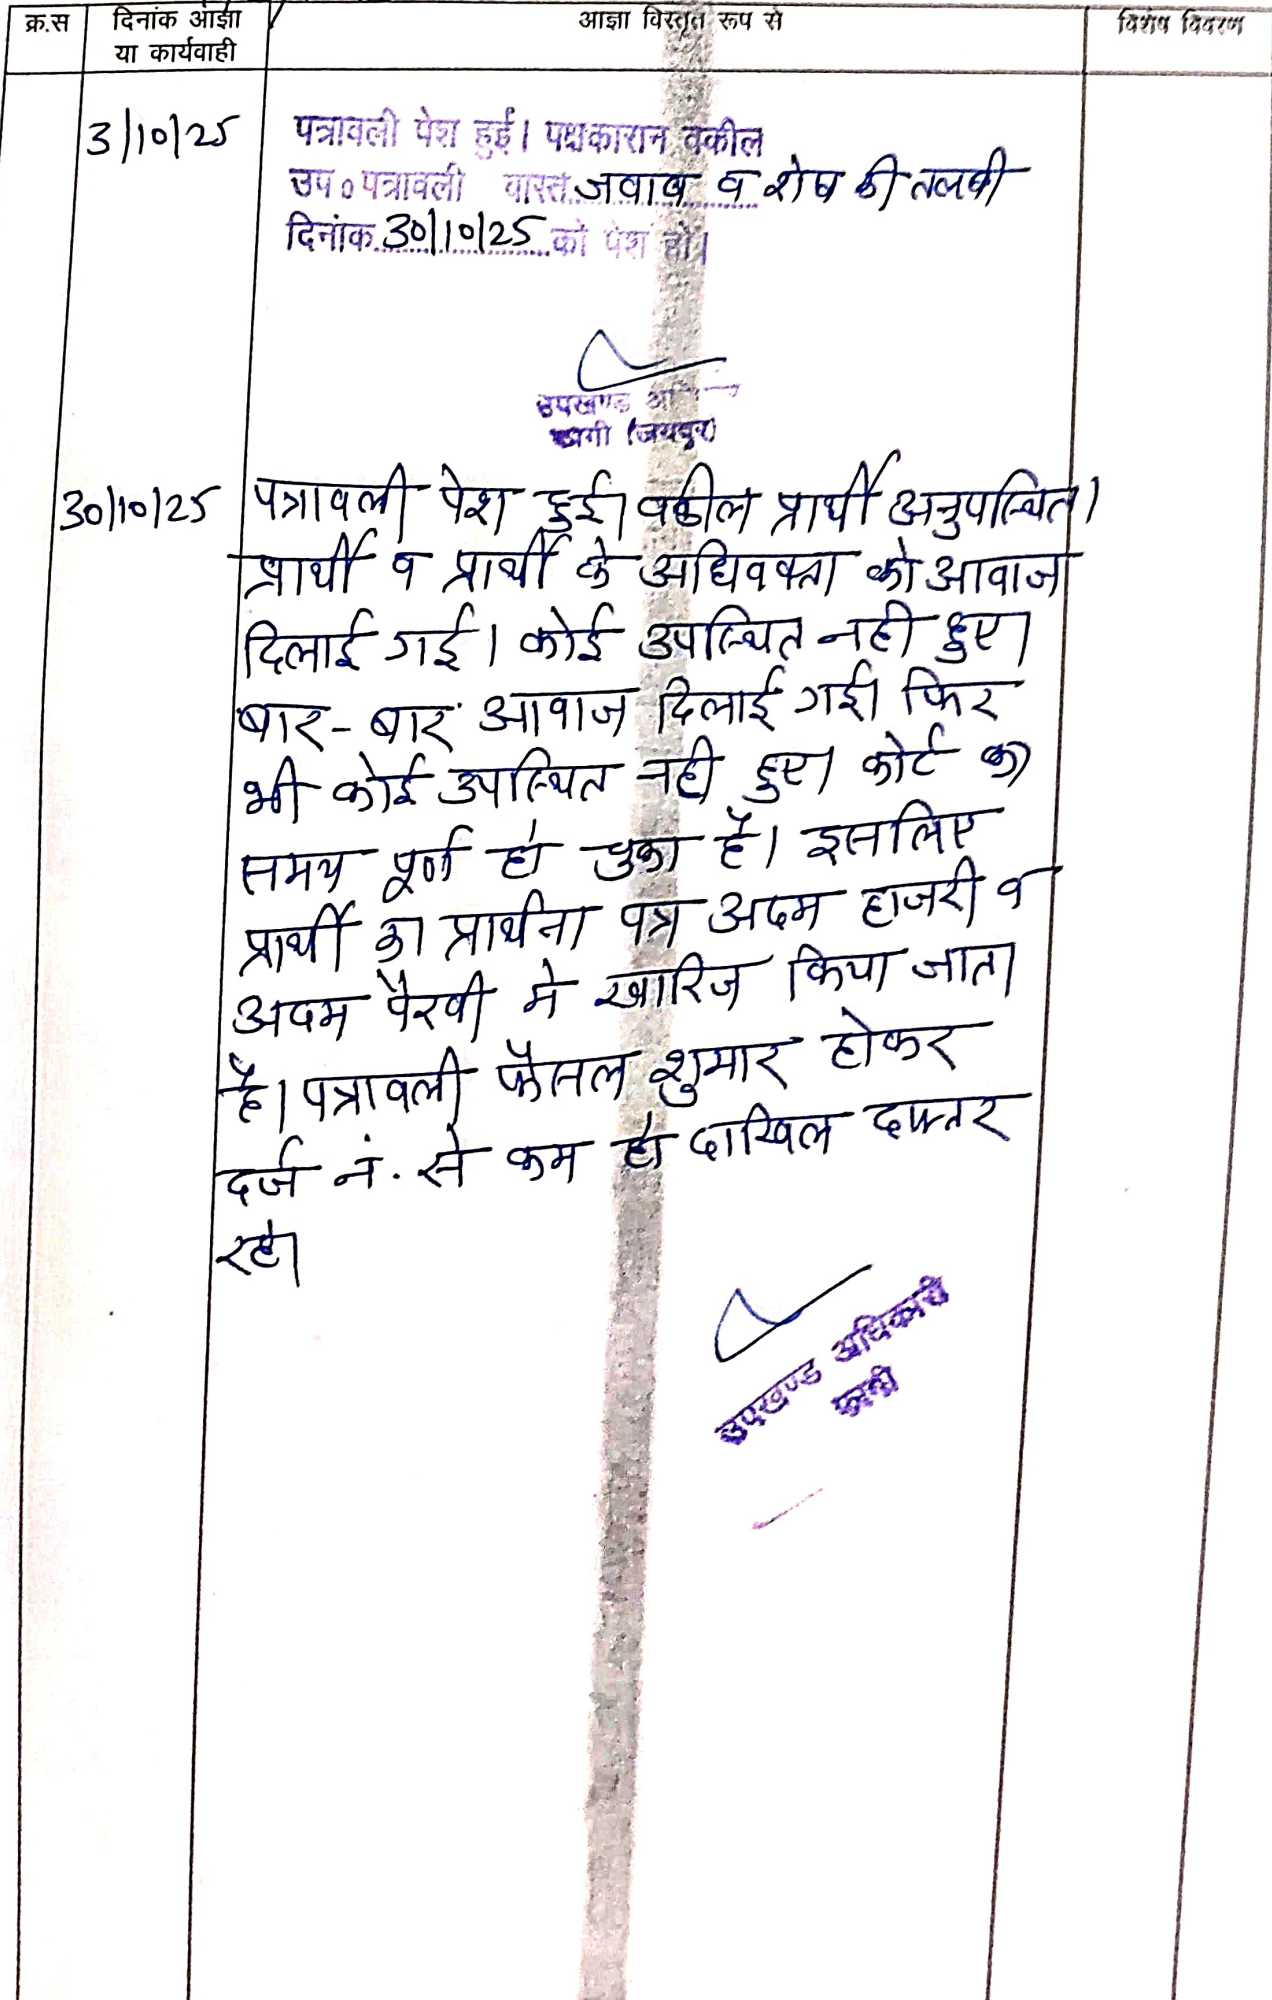 क्र.स दिनांक आज्ञा आज्ञा विस्तृत रूप से विशेष विवरण
या कार्यवाही
3/10/25 पत्रावली पेश हुई। पक्षकारान वकील
उप० पत्रावली वास्ते जवाब व शेष की तलबी
दिनांक 30/10/25 को पेश हो।
उपखण्ड
(जयपुर)
30/10/25 पत्रावली पेश हुई। वकील प्रार्थी अनुपस्थित।
प्रार्थी व प्रार्थी के अधिवक्ता को आवाज
दिलाई गई। कोई उपस्थित नही हुए।
बार-बार आवाज दिलाई गई। फिर
भी कोई उपस्थित नही हुए। कोर्ट का
समय पूर्ण हो चुका है। इसलिए
प्रार्थी का प्रार्थना पत्र अदम हाजरी व
अदम पैरवी मे खारिज किया जाता
है। पत्रावली फैसल शुमार होकर
दर्ज नं. से कम हो दाखिल दफ्तर
रहे।
उपखण्ड अधिकारी
फागी